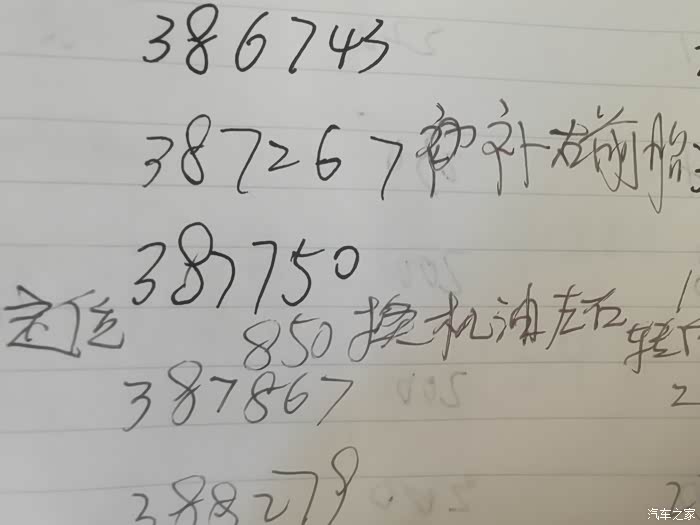 386743
387267 补左前胎
387750
定位 850 换机油左右转
387867
388278
汽车之家